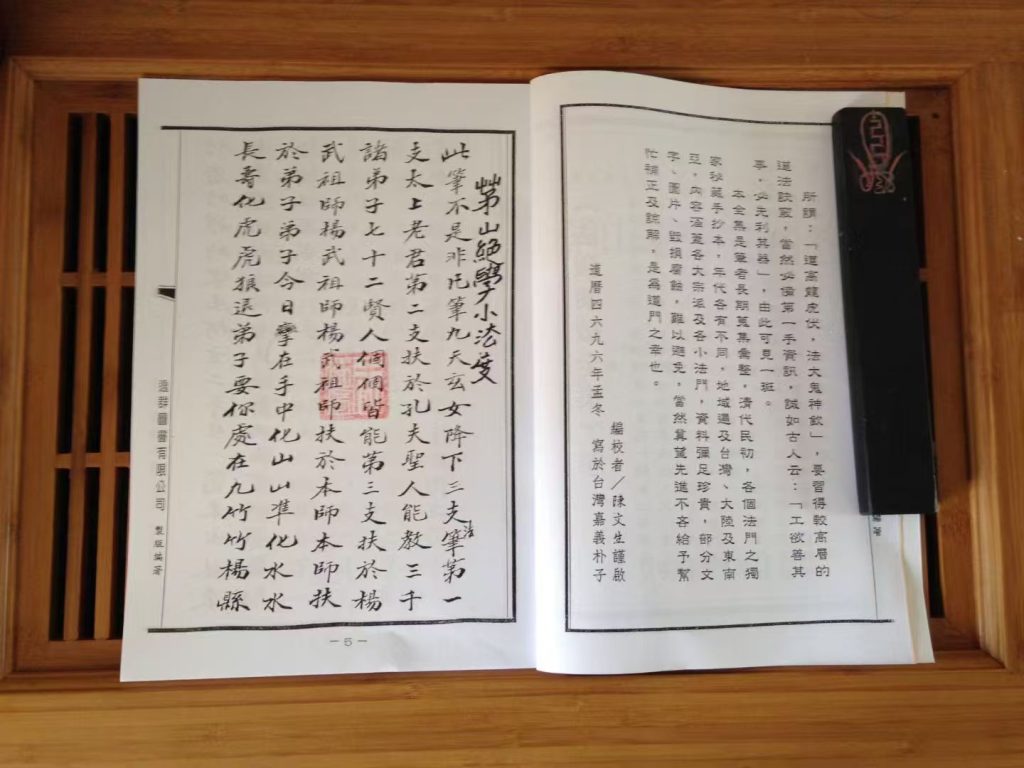 所謂：「道高龍虎伏，法大鬼神欽」，要習得較高層的
道法訣竅，當然必備第一手資訊，誠如古人云：「工欲善其
事，必先利其器」，由此可見一斑。
本全集是筆者長期蒐集彙整，清代民初，各個法門之獨
家秘藏手抄本，年代各有不同，地域遍及台灣、大陸及東南
亞，內容涵蓋各大宗派及各小法門，資料彌足珍貴，部分文
字、圖片、毀損腐蝕，難以避免，當然冀望先進不吝給予幫
忙補正及諒解，是為道門之幸也。
編校者／陳文生謹啟
道曆四六九六年孟冬　寫於台灣嘉義朴子
編著
茅山絕學小法
此筆不是非凡筆九天玄女降下三支筆第一
法
支太上老君第二支扶於孔夫聖人能教三千
諸弟子七十二賢人個個皆能第三支扶於楊
武祖師楊武祖師楊武祖師扶於本師本師扶
於弟子弟子今日拏在手中化山山準化水水
長壽化虎虎狼退弟子要你處在九竹竹楊縣
逸群圖書有限公司 製版編著
－5－